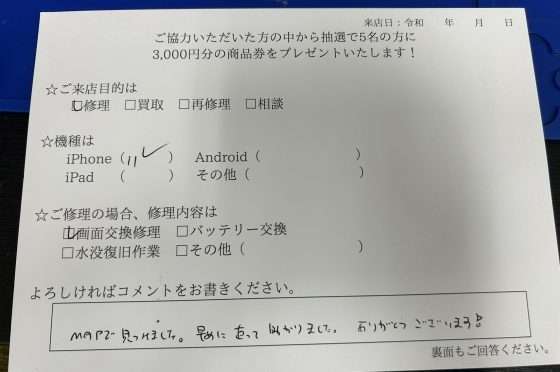 来店日：令和　　年　　月　　日
ご協力いただいた方の中から抽選で5名の方に
3,000円分の商品券をプレゼントいたします！
☆ご来店目的は
☑修理　□買取　□再修理　□相談
☆機種は
iPhone（11 ✓　）　Android（　　　　　　　）
iPad　（　　　）　その他（　　　　　　　）
☆ご修理の場合、修理内容は
☑画面交換修理　□バッテリー交換
□水没復旧作業　□その他（　　　　　　　）
よろしければコメントをお書きください。
MAPで見つけました。早めに直って助かりました。ありがとうございます!
裏面もご回答ください。